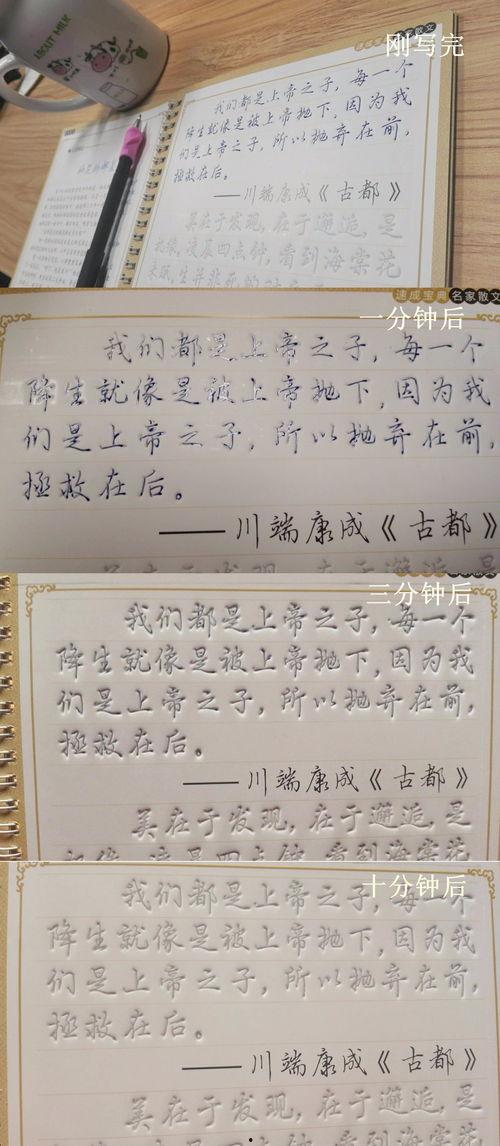 ABOUT MILK
名家散文
刚写完
我们都是上帝之子，每一个
降生就像是被上帝抛下，因为我
们是上帝之子，所以抛弃在前，
拯救在后。
——川端康成《古都》
美在于发现，在于邂逅，是
机缘。凌晨四点钟，看到海棠花
未眠，
速成宝典 名家散文
一分钟后
我们都是上帝之子，每一个
降生就像是被上帝抛下，因为我
们是上帝之子，所以抛弃在前，
拯救在后。
——川端康成《古都》
美在于发现，在于邂逅，是
三分钟后
我们都是上帝之子，每一个
降生就像是被上帝抛下，因为我
们是上帝之子，所以抛弃在前，
拯救在后。
——川端康成《古都》
美在于发现，在于邂逅，是
机缘。凌晨四点钟，看到海棠花
十分钟后
我们都是上帝之子，每一个
降生就像是被上帝抛下，因为我
们是上帝之子，所以抛弃在前，
拯救在后。
——川端康成《古都》
美在于发现，在于邂逅，是
机缘。凌晨四点钟，看到海棠花